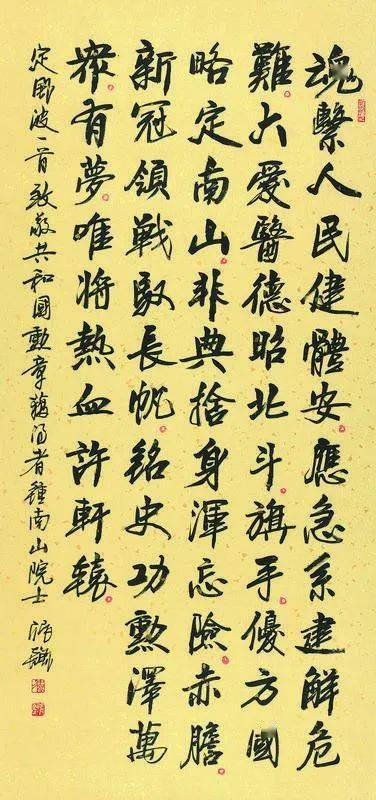 魂繫人民健體安應急系建解危
難大愛醫德昭北斗旗手優方國
略定南山非典捨身渾忘險赤膽
新冠領戦馭長帆銘史功勳澤萬
衆有夢唯將熱血許軒轅
定風波一首致敬共和國勳章獲得者鍾南山院士